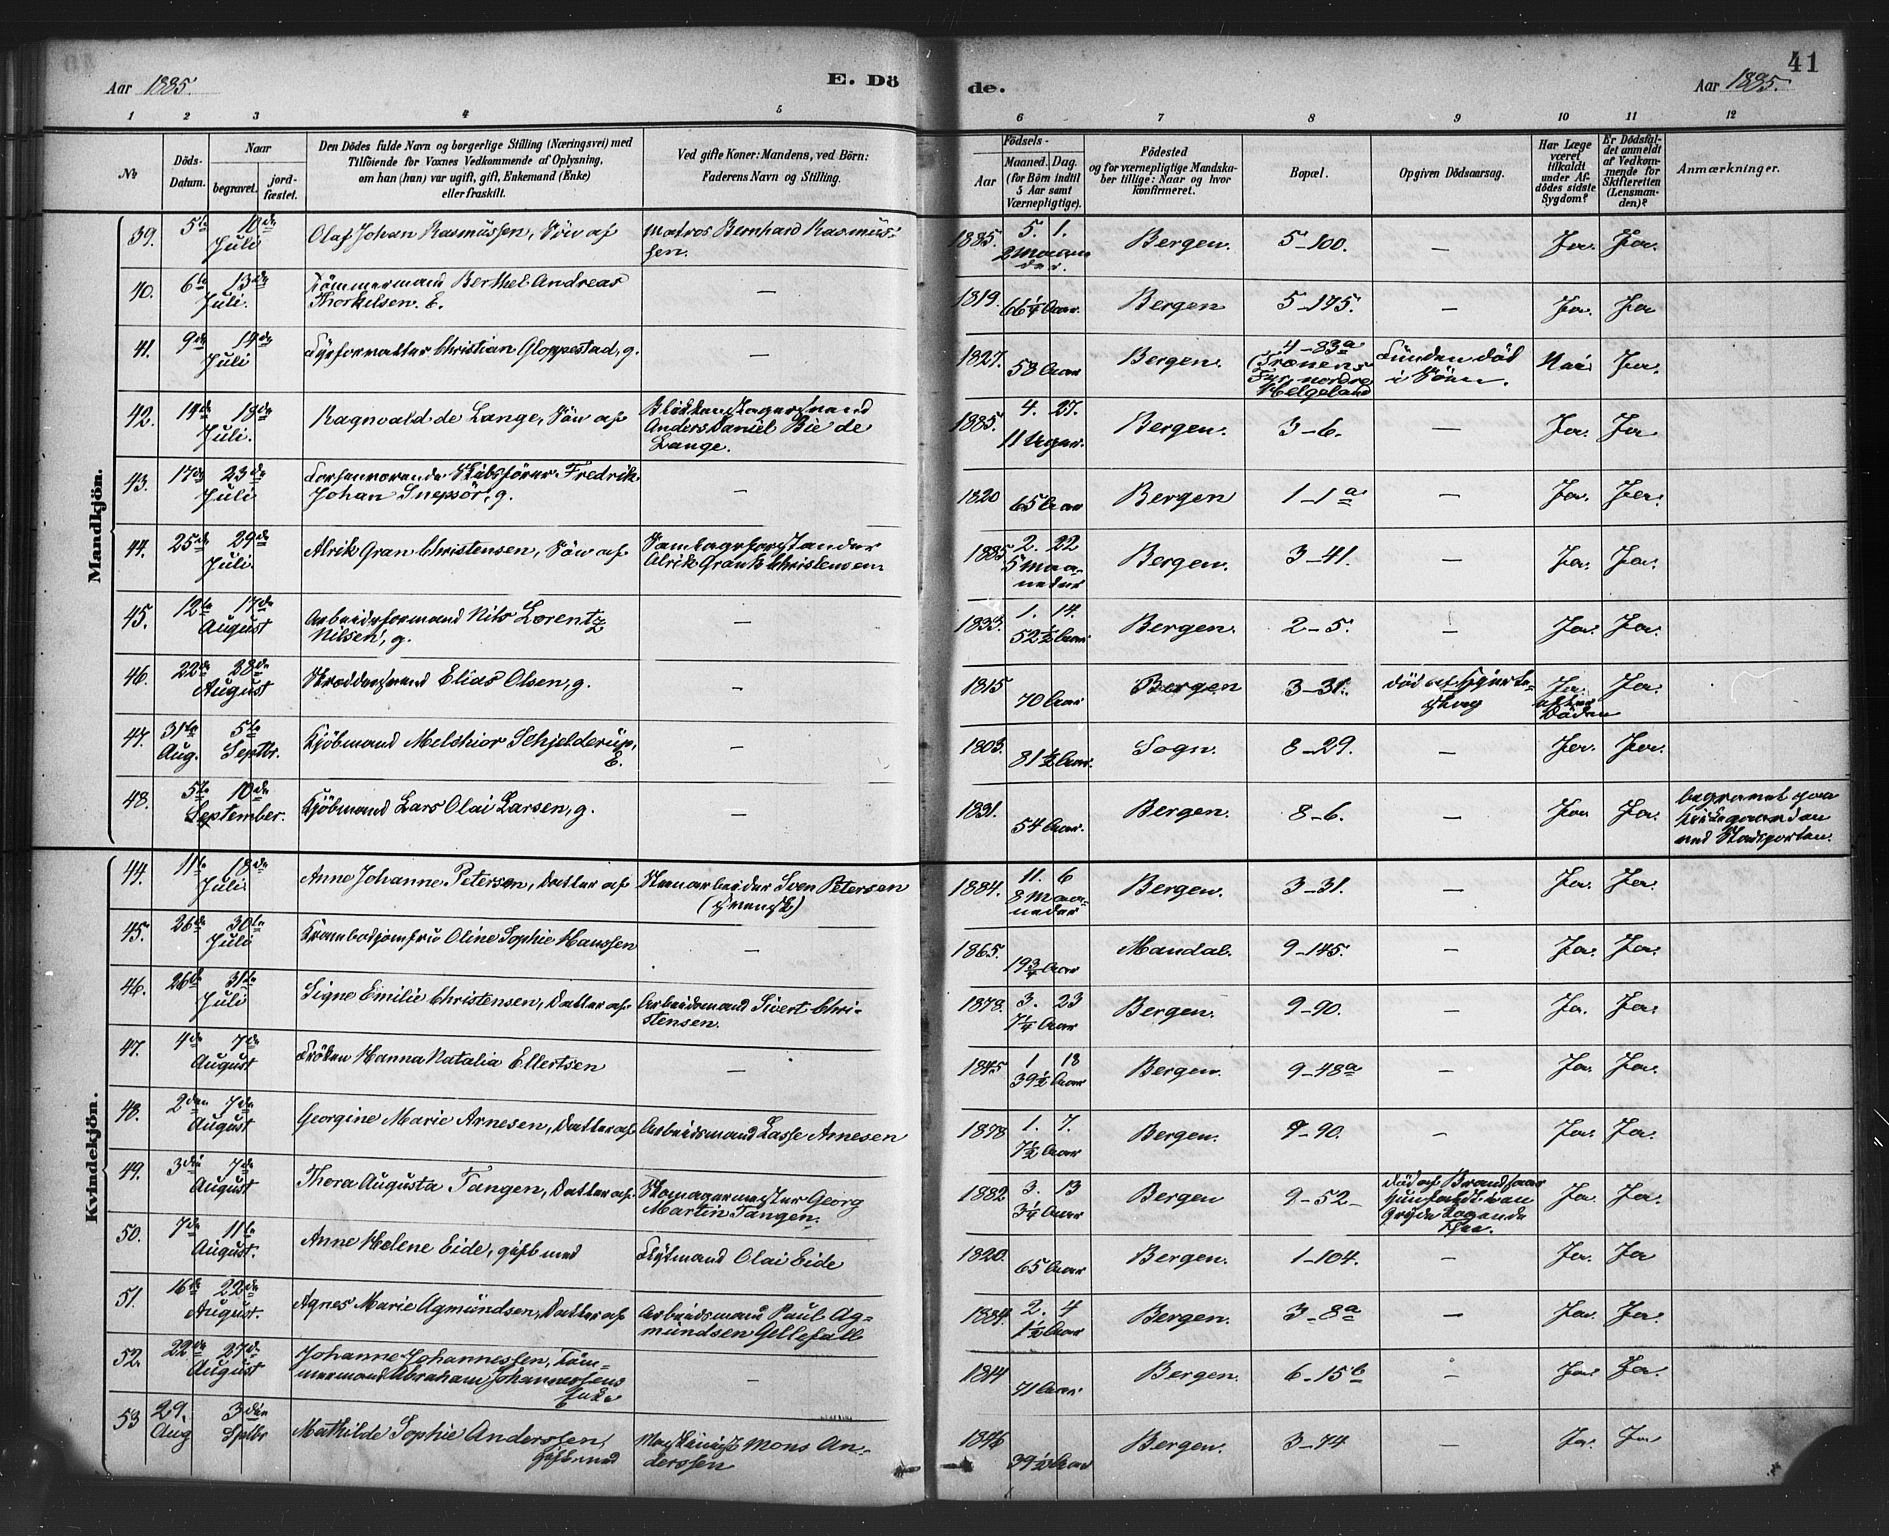 Aar 1885. E. Dö de. Aar 1885. 41
1 2 3 4 5 6 7 8 9 10 11 12
No Döds-Datum. Naar begravet. jord-fæstet. Den Dödes fulde Navn og borgerlige Stilling (Næringsvei) med Tilföiende for Voxnes Vedkommende af Oplysning, om han (hun) var ugift, gift, Enkemand (Enke) eller fraskilt. Ved gifte Koner: Mandens, ved Börn: Faderens Navn og Stilling. Födsels- Aar Maaned. Dag. (for Börn indtil 5 Aar samt Værnepligtige). Födested og for værnepligtige Mandskaber tillige: Naar og hvor konfirmeret. Bopæl. Opgiven Dödsaarsag. Har Læge været tilkaldt under Afdödes sidste Sygdom? Er Dödsfaldet anmeldt af Vedkommende for Skifteretten (Lensmanden)? Anmærkninger.
Mandkjön.
39. 5te 10de Juli Olaf Johan Rasmussen, Sön af Matros Bernhard Rasmussen. 1885. 5. 1. 2 Maaneder. Bergen. 5-100. — Ja. Ja.
40. 6te 13de Juli. Tömmermand Berthel Andreas Thorkilsen. E. — 1819. 66¼ Aar. Bergen 5-175. — Ja. Ja
41. 9de 14de Juli Fyrforvalter Christian Gloppestad, g. — 1827. 58 Aar Bergen. 4-83a (Trænens Fyr, nordre Helgeland Funden död i Söen. Nei Ja.
42. 14de 18de Juli. Ragnvald de Lange, Sön af Blikkenslagersvend Anders Daniel Bie de Lange. 1885. 4. 27. 11 Uger. Bergen. 3-6. — Ja. Ja
43. 17de 23de Juli Forhenværende Skibsförer Fredrik Johan Sneppör, g. — 1820 65 Aar Bergen 1-1a — Ja. Ja.
44. 25de 29de Juli Alrik Gran Christensen, Sön af Samlagsforstander Alrik Grank Christensen. 1885. 2. 22 5 Maaneder Bergen. 3-41. — Ja. Ja.
45. 12te 17de August Arbeidsformand Nils Lorentz Nilsen, g. — 1833. 1. 14. 52½ Aar Bergen. 2-5. — Ja. Ja.
46. 22de 28de August Skræddersvend Elias Olsen, g. — 1815 70 Aar Bergen 3-31. död af Hjerteslag Ja. efter Döden Ja.
47. 31te Aug. 5te Septbr. Kjöbmand Melchior Schjelderup, E. — 1803. 81½ Aar. Sogn. 8-29. — Ja. Ja.
48. 5te 10de September. Kjöbmand Lars Olai Larsen, g. — 1831. 54 Aar. Bergen. 8-6. — Ja Ja. begravet paa Kirkegaarden ved Stadsporten.
Kvindekjön.
44. 11te 18de Juli Anne Johanne Petersen, Datter af Stenarbeider Sven Petersen (svensk) 1884. 11. 6 8 Maaneder Bergen. 3-31. — Ja. Ja.
45. 26de 30te Juli Krambodjomfru Oline Sophie Hanssen — 1865. 19¾ Aar Mandal. 9-145. — Ja. Ja.
46. 26de 31te Juli Signe Emilie Christensen, Datter af Arbeidsmand Sivert Christensen. 1878. 3. 23 7¼ Aar Bergen. 9-90. — Ja. Ja.
47. 4de 7de August Fröken Hanna Natalia Ellertsen — 1845 1 18 39½ Aar Bergen. 9-48a — Ja. Ja.
48. 2den 7de August Georgine Marie Arnesen, Datter af Arbeidsmand Lasse Arnesen 1878 1. 7. 7½ Aar Bergen. 9-90. — Ja. Ja.
49. 3die 7de August Thora Augusta Tangen, Datter af Skomagermester Georg Martin Tangen. 1882 3. 13 3¼ Aar Bergen 9-52- död af Brandsaar faldt i en Gryde kogende Ja. Ja.
50. 7de 11te August. Anne Helene Eide, gift med Olai Eide 1820. 65 Aar Bergen. 1-104. — Ja. Ja
51. 16de 22de August. Agnes Marie Agmundsen, Datter af Arbeidsmand Paul Agmundsen Gellefald 1884. 2. 4 1½ Aar Bergen. 3-8a — Ja. Ja.
52. 22de 27de August Johanne Johannessen, Tömmermand Abraham Johannessens Enke — 1814 71 Aar Bergen. 6-15b — Ja Ja.
53 29. Aug 3die Sptbr Mathilde Sophie Anderssen, Gift med Maskinist Mons Anderssen 1846 39½ Aar Bergen. 3-74 — Ja. Ja